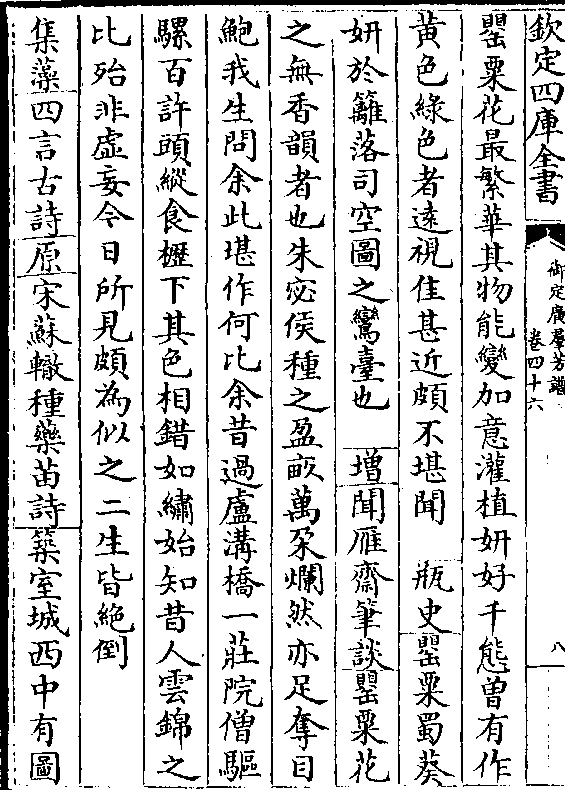 欽定四庫全書
御定廣羣芳譜
卷四十六
八
罌粟花最繁華其物能變加意灌植妍好千態曽有作
黄色綠色者逺視佳甚近頗不堪聞　瓶史罌粟蜀葵
妍於籬落司空圖之鸞臺也　増聞雁齋筆談罌粟花
之無香韻者也朱宓侯種之盈畝萬朶爛然亦足奪目
鮑我生問余此堪作何比余昔過盧溝橋一莊院僧驅
騾百許頭縱食櫪下其色相錯如繡始知昔人雲錦之
比殆非虚妄今日所見頗為似之二生皆絶倒
集藻四言古詩原宋蘇轍種藥苗詩築室城西中有圖